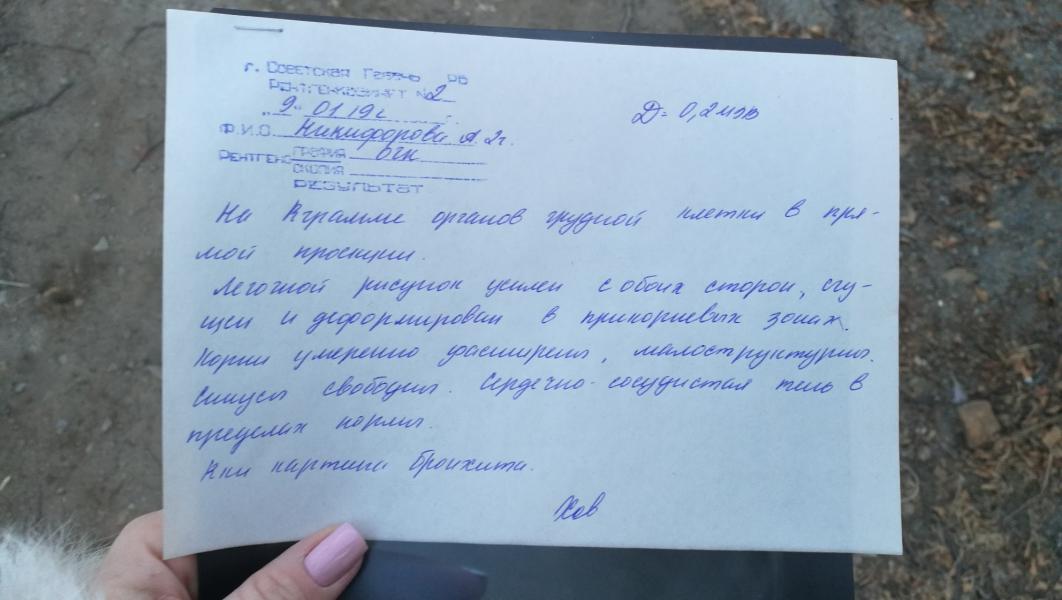 г. Советская Гавань РБ
РЕНТГЕНКАБИНЕТ № 2
„9“ 01 19 г.
Д = 0,2 мзв
Ф.И.О. Никифорова А. 2г.
РЕНТГЕНО ГРАФИЯ ОГК
СКОПИЯ
РЕЗУЛЬТАТ
На Rграмме органов грудной клетки в пря-
мой проекции.
Легочной рисунок усилен с обоих сторон, сгу-
щен и деформирован в прикорневых зонах.
Корни умеренно расширены, малоструктурны.
Синусы свободны. Сердечно-сосудистая тень в
пределах нормы.
Rки картина бронхита.